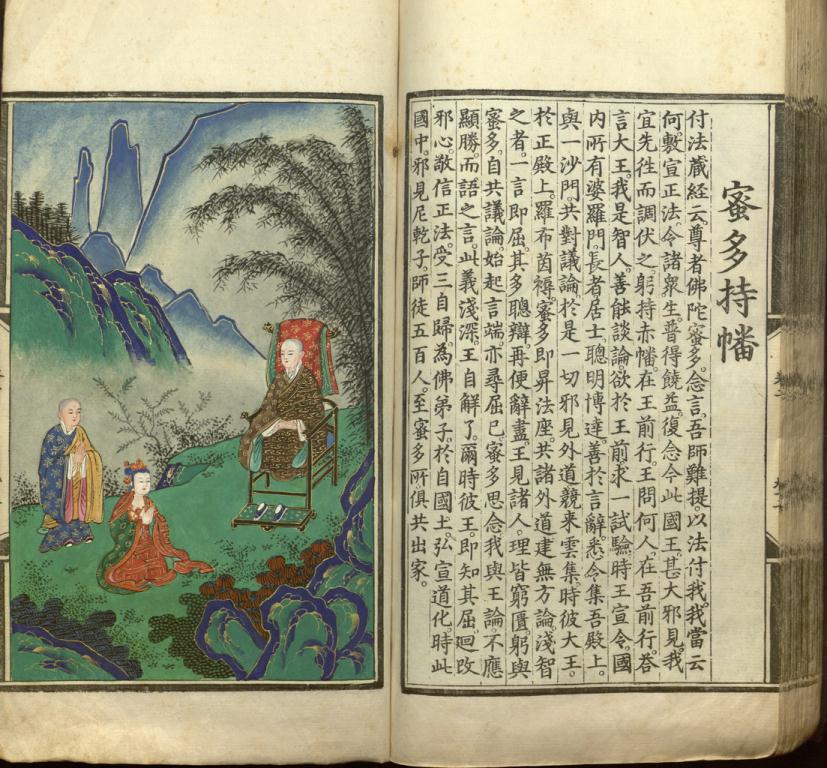 蜜多持幡
付法藏經云。尊者佛陀蜜多。念言。吾師難提。以法付我。我當云
何敷宣正法。令諸眾生。普得饒益。復念今此國王。甚大邪見。我
宜先往而調伏之。躬持赤幡。在王前行。王問何人。在吾前行。荅
言大王。我是智人。善能談論。欲於王前求一試驗。時王宣令。國
內所有婆羅門。長者居士。聰明博達。善於言辭。悉令集吾殿上。
與一沙門。共對議論。於是一切邪見外道。競來雲集。時彼大王。
於正殿上。羅布茵褥。蜜多即昇法座。共諸外道。建無方論。淺智
之者。一言即屈。其多聰辯。再便辭盡。王見諸人。理皆窮匱。躬與
蜜多。自共議論。始起言端。亦尋屈已。蜜多思念。我與王論。不應
顯勝。而語之言。此義淺深。王自解了。爾時彼王。即知其屈。迴改
邪心。敬信正法。受三自歸。為佛弟子。於自國土。弘宣道化。時此
國中。邪見尼乾子。師徒五百人。至蜜多所。俱共出家。